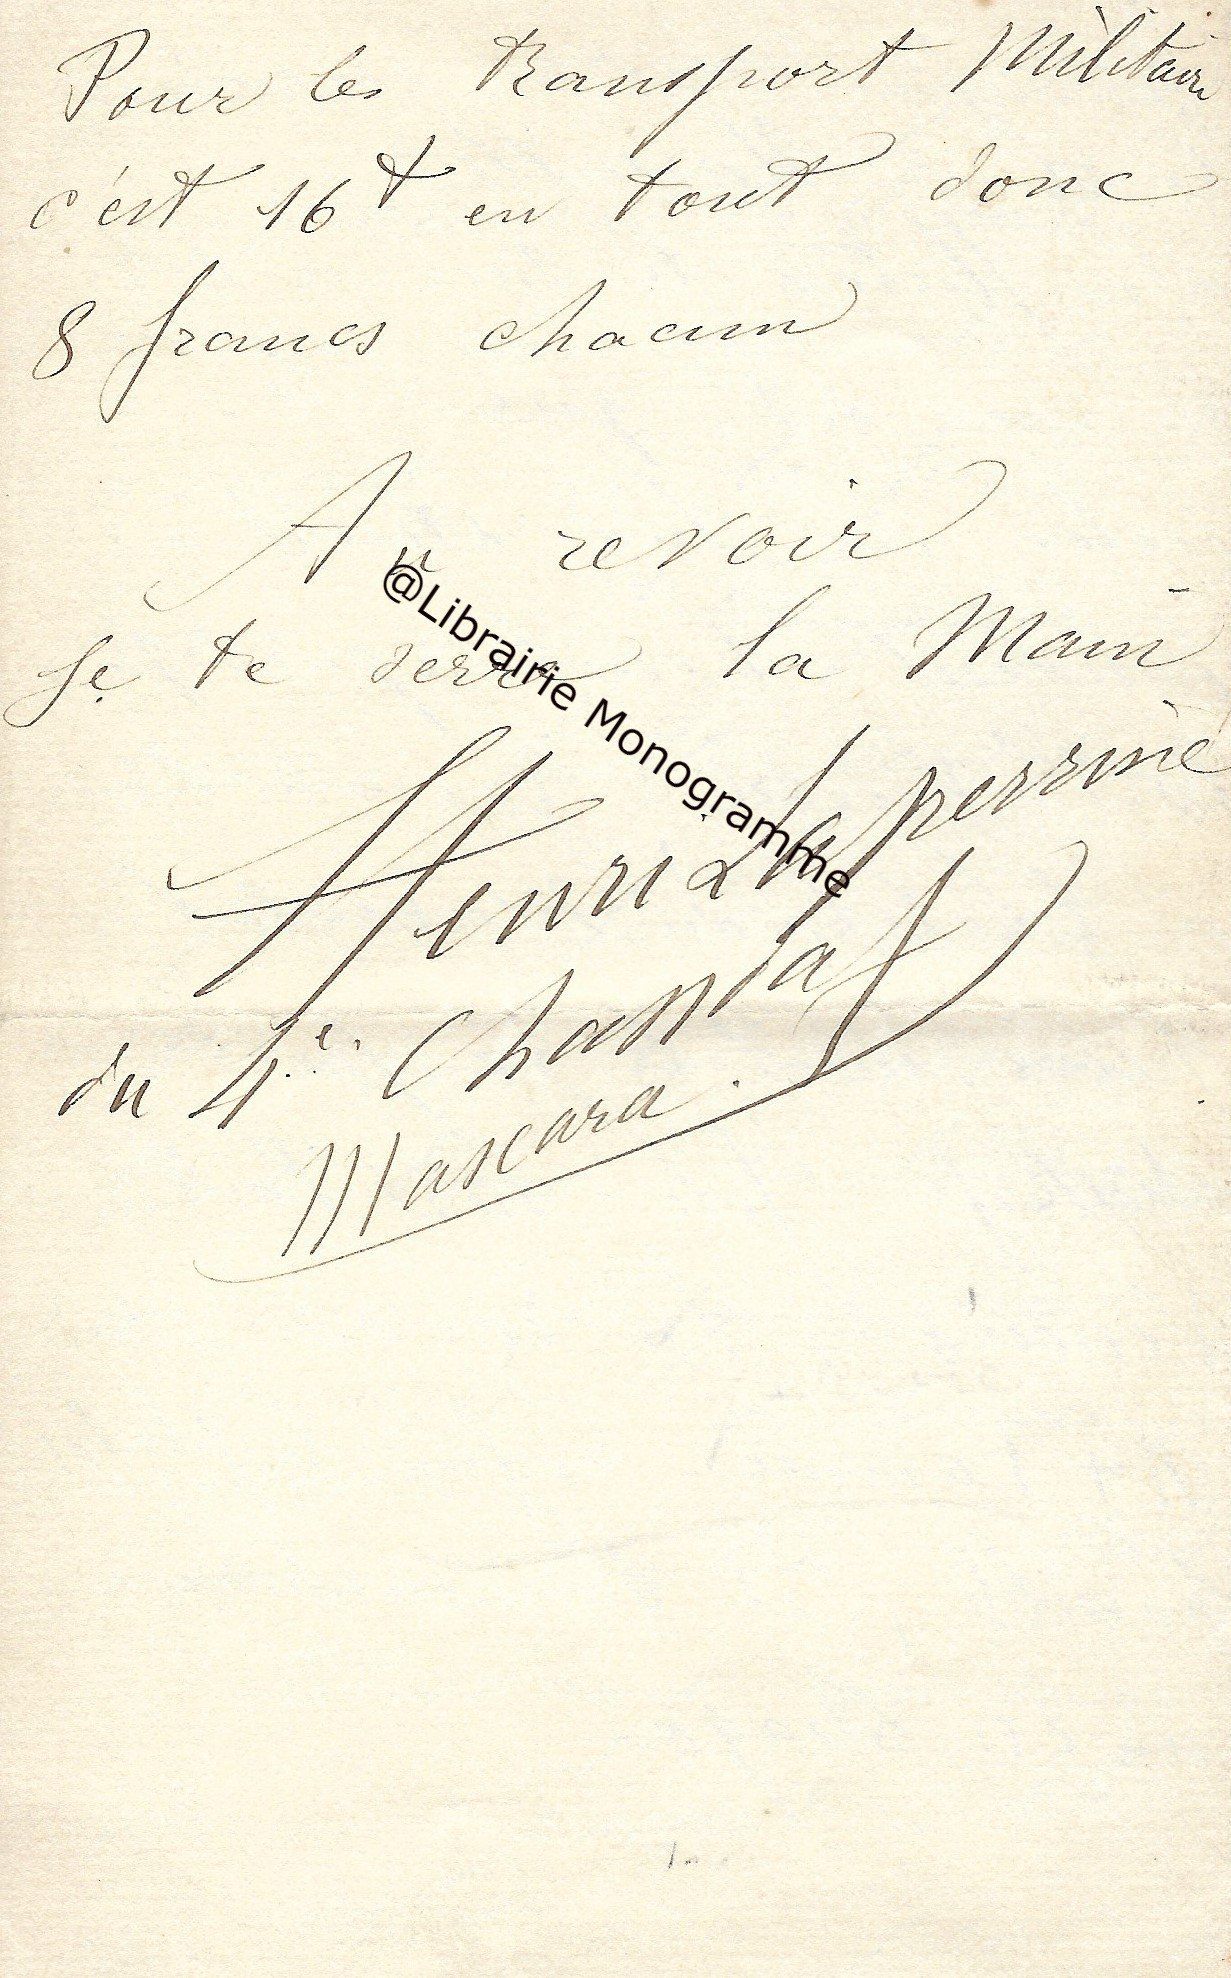 Pour les transport Militaire
c'est 16 f en tout donc
8 francs chacun
Au revoir
Je te serre la Main
Henri Laperrine
du 4e. Chass d'af
Mascara.
@Librairie Monogramme